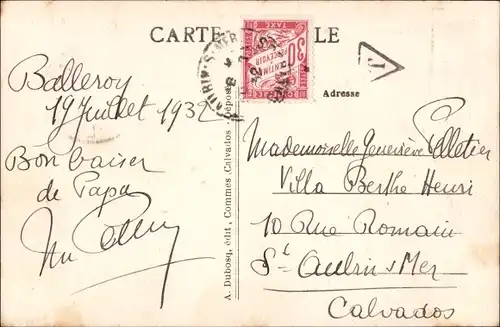 CARTE LE
30
CENTIMES
A PERCEVOIR
TAXE
T
Adresse
Balleroy
19 Juillet 1932
Bon baiser
de Papa
A. Dubosq, édit., Commes, Calvados
Mademoiselle Geneviève Pelletier
Villa Berthe Henri
10 Rue Romain
St Aubin s/Mer
Calvados